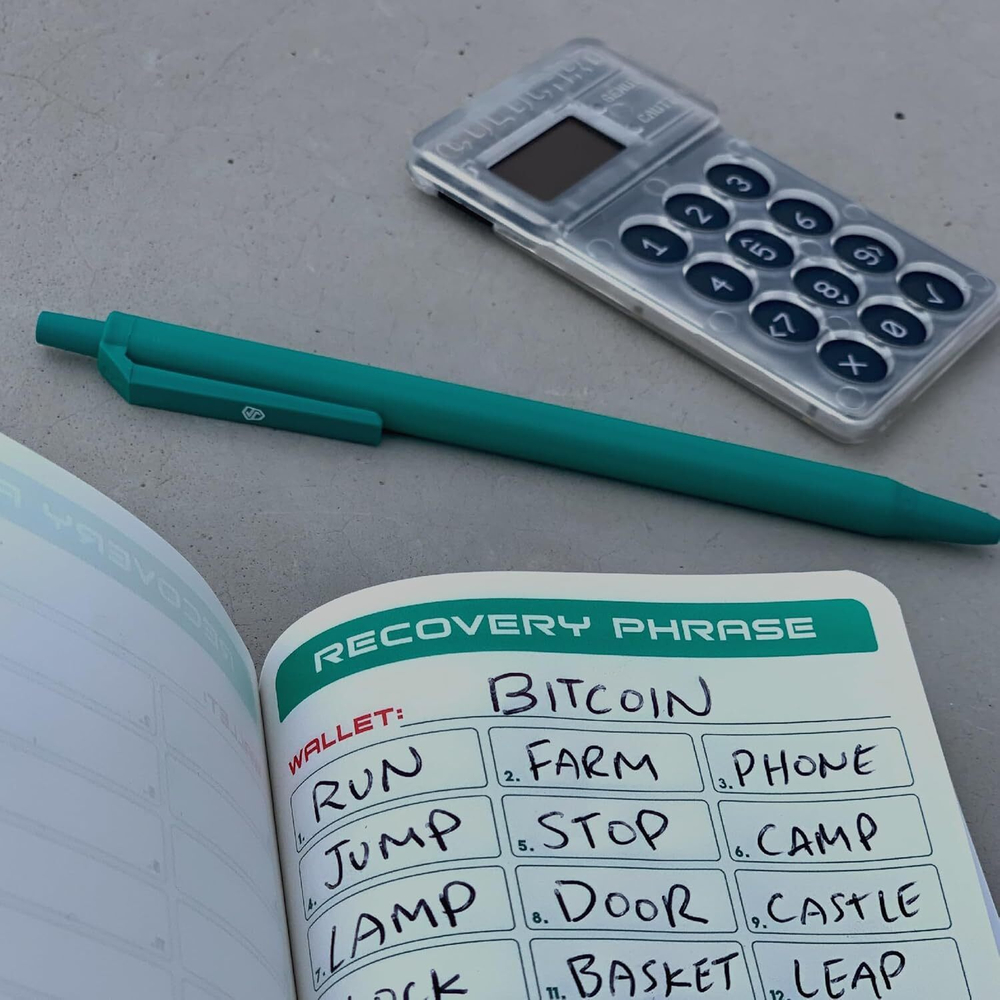 COLDCARD
1 2 3
4 <5 6
<7 8> 9>
X 0 ✓
RECOVERY PHRASE
WALLET: BITCOIN
1. RUN 2. FARM 3. PHONE
4. JUMP 5. STOP 6. CAMP
7. LAMP 8. DOOR 9. CASTLE
11. BASKET 12. LEAP